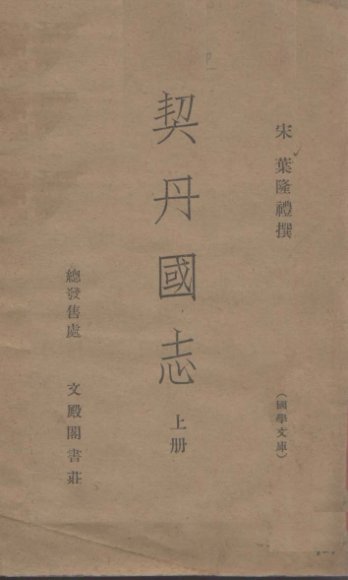 宋 葉隆禮撰
（國學文庫）
契丹國志 上册
總發售處 文殿閣書莊